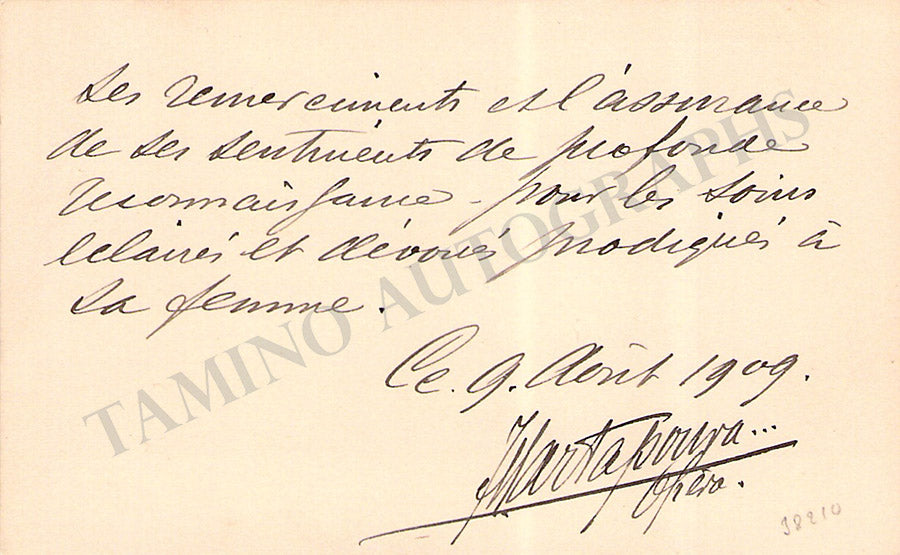 ses remerciments et l'assurance
de ses sentiments de profonde
reconnaissance - pour les soins
éclairés et dévoués prodigués à
sa femme.
Ce. 9. Août 1909.
JMartapoura...
Opéra.
38210
TAMINO AUTOGRAPHS